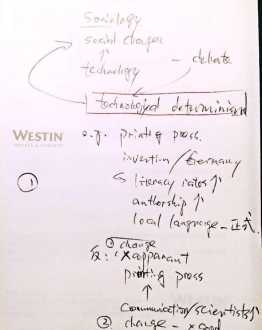 Sociology
social changes
↑
technology — debate
technological determinism
WESTIN
HOTELS & RESORTS
e.g. printing press.
invention / Germany
↳ literacy rates ↑
authorship ↑
local language — 正式.
①
① change
反: ✗ apparant
printing press
↑
communication / scientists ↑
② change — × good